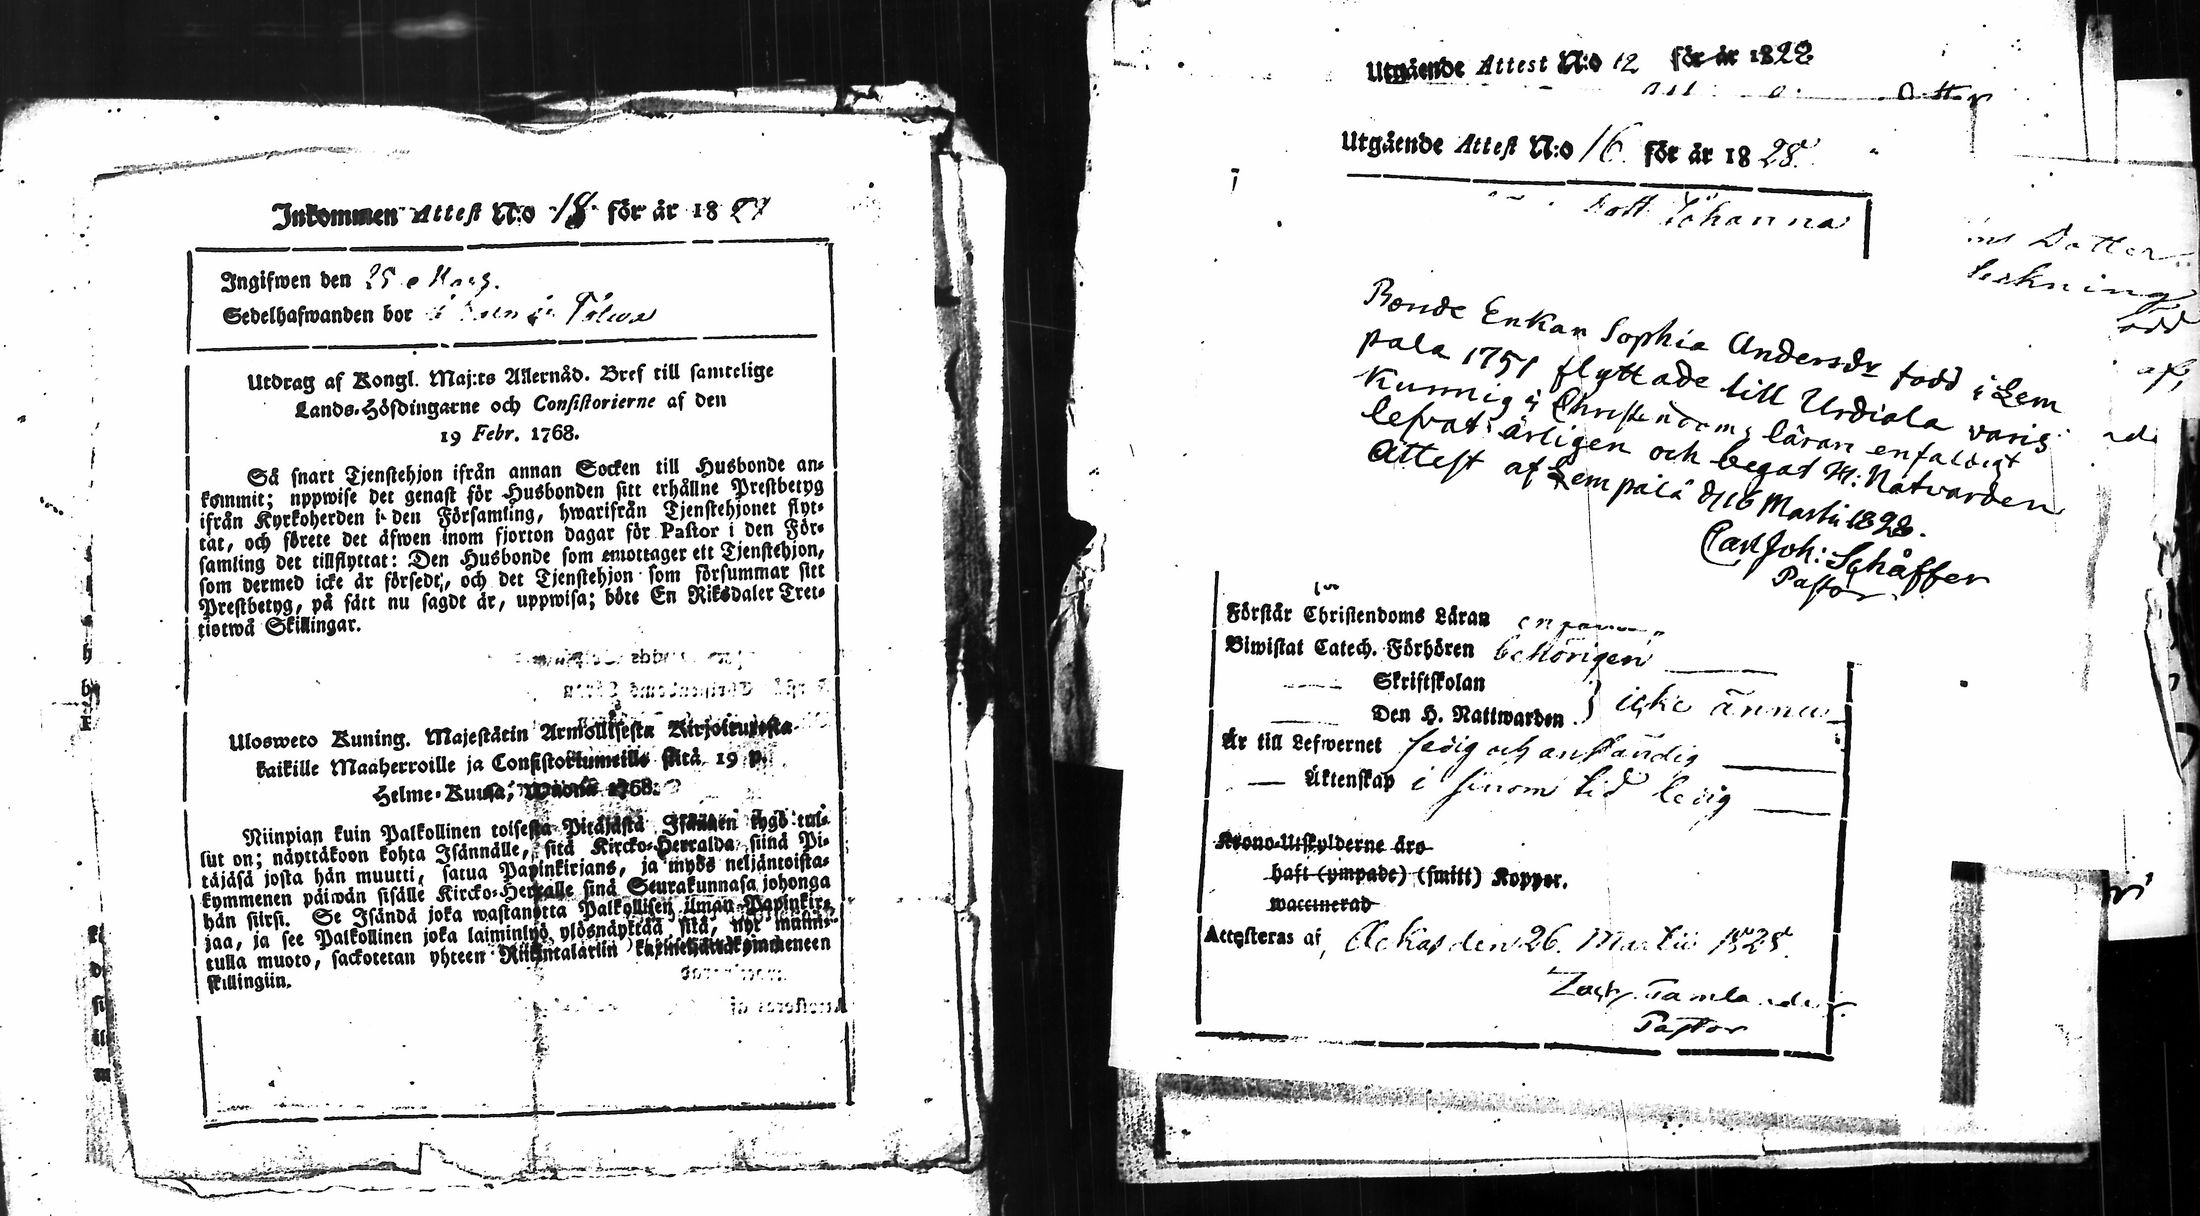 Inkommen Attest N:o 18 för år 1827
Ingifwen den 25 Mars.
Sedelhafwanden bor i
Utdrag af Kongl. Maj:ts Allernåd. Bref till samtelige
Lands-Höfdingarne och Consistorierne af den
19 Febr. 1768.
Så snart Tjenstehjon ifrån annan Socken till Husbonde an-
kommit; uppwise det genast för Husbonden sitt erhållne Prestbetyg
ifrån Kyrkoherden i den Församling, hwarifrån Tjenstehjonet flyt-
tat, och förete det äfwen inom fjorton dagar för Pastor i den För-
samling det tillflyttat: Den Husbonde som emottager ett Tjenstehjon,
som dermed icke är försedt, och det Tjenstehjon som försummar sitt
Prestbetyg, på sätt nu sagdt är, uppwisa; böte En Riksdaler Tret-
tiotwå Skillingar.
Ulosweto Kuning. Majestätin Armollisesta Kirjoituxesta
kaikille Maaherroille ja Consistoriumeille sitä 19 p.
Helme-Kuusa, Wuonna 1768.
Niinpian kuin Palkollinen toisesta Pitäjästä Isännen tygö tul-
lut on; näyttäkoon kohta Isännälle, sitä Kircko-Herralda siinä Pi-
täjäsä josta hän muutti, saatua Papinkirjans, ja myös neljäntoista-
kymmenen päiwän sisälle Kircko-Herralle siinä Seurakunnasa johonga
hän siirsi. Se Isändä joka wastanotta Palkollisen ilman Papinkir-
jaa, ja see Palkollinen joka laiminlyö ylösnäyttää sitä, nyt mainit-
tulla muoto, sackotetan yhteen Riikintalariin kaxineljättäkymmeneen
skillingiin.
Utgående Attest N:o 12 för år 1828
Utgående Attest N:o 16 för år 1828.
Johanna
Dotter
Bonde Enkan Sophia Andersdr född i Lem
pala 1751 flyttade till Urdiala varis
Kunnig i Christendoms läran enfaldigt
lefvat ärligen och begåt H: Natvarden
Attest af Lempälä d 16 Martii 1828.
Carl Joh: Schåffer
Pastor
Förstår Christendoms Läran
Biwistat Catech. Förhören behörigen
Skriftskolan
Den H. Nattwarden } icke ännu
Är till Lefwernet sedig och anständig
— Äktenskap i sinom tid ledig
Krono-Utskylderne äro
haft (ympade) (smitt) Koppor.
waccinerad
Attesteras af, Ackas den 26. Martii 1828.
Pastor